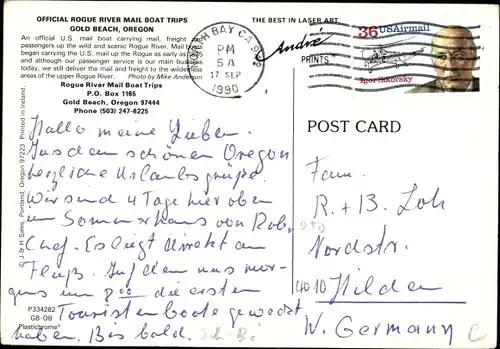 OFFICIAL ROGUE RIVER MAIL BOAT TRIPS
GOLD BEACH, OREGON
An official U.S. mail boat carrying mail, freight and
passengers up the wild and scenic Rogue River. Mail boats
began carrying the U.S. mail up the Rogue as early as
and although our passenger service is our main business
today, we still deliver mail and freight to the wilderness
areas of the upper Rogue River. Photo by Mike Anderson
Rogue River Mail Boat Trips
P.O. Box 1165
Gold Beach, Oregon 97444
Phone (503) 247-6225
THE BEST IN LASER ART
André
PRINTS
BAY CA
PM
5A
17 SEP
1990
36 USAirmail
Igor Sikorsky
POST CARD
Hallo meine Lieben.
Aus dem schönen Oregon
herzliche Urlaubsgrüße.
Wir sind 4 Tage hier oben
im Sommerhaus von Rob.
Chef. Es liegt direkt am
Fluß. Auf dem uns mor-
gens um 8 00 die ersten
Touristenboote geweckt
haben. Bis bald.
Fam.
R. + B. Loh
Nordstr.
4010 Hilden
W. Germany
© J & H Sales, Portland, Oregon 97223 Printed in Ireland.
P334282
GB-OB
Plastichrome®